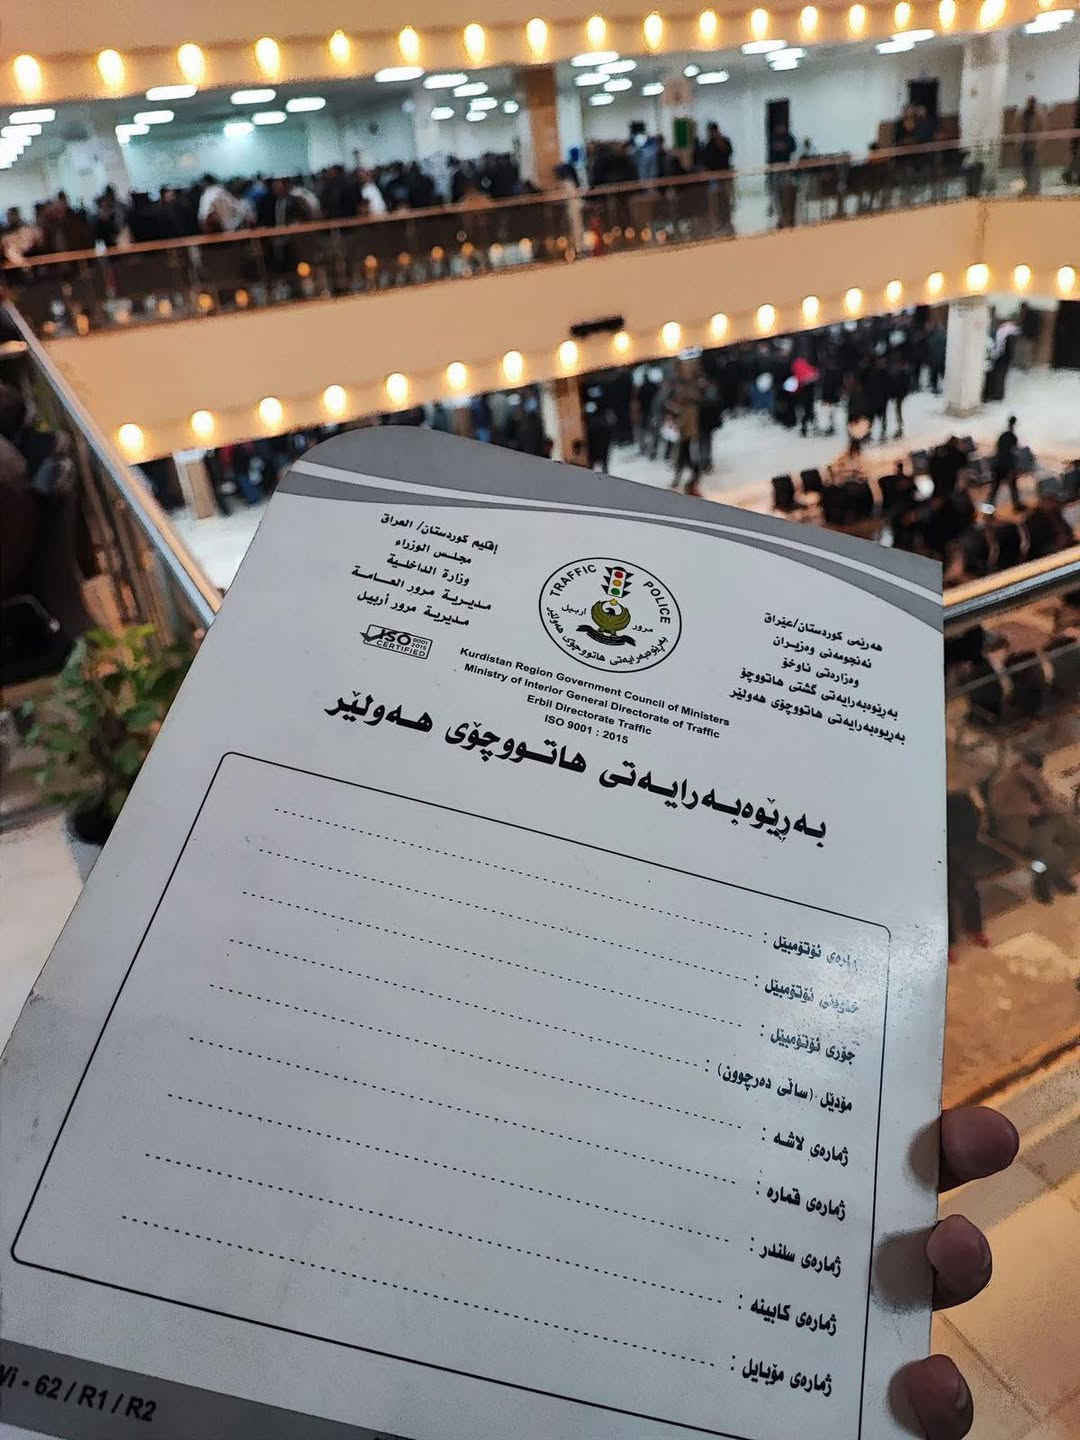 إقليم كوردستان/ العراق
مجلس الوزراء
وزارة الداخلية
مديرية مرور العامة
مديرية مرور أربيل
ISO 9001 2015
CERTIFIED
TRAFFIC POLICE
مرور اربيل
بەڕێوەبەرایەتی هاتووچۆی هەولێر
هەرێمی کوردستان/عێراق
ئەنجومەنی وەزیران
وەزارەتی ناوخۆ
بەڕێوەبەرایەتی گشتی هاتووچۆ
بەڕێوەبەرایەتی هاتووچۆی هەولێر
Kurdistan Region Government Council of Ministers
Ministry of Interior General Directorate of Traffic
Erbil Directorate Traffic
ISO 9001 : 2015
بەڕێوەبەرایەتی هاتووچۆی هەولێر
ئۆتۆمبێل :
خاوەنی ئۆتۆمبێل :
جۆری ئۆتۆمبێل :
مۆدێل (ساڵی دەرچوون) :
ژمارەی لاشە :
ژمارەی قمارە :
ژمارەی سلندر :
ژمارەی کابینە :
ژمارەی مۆبایل :
- 62 / R1 / R2